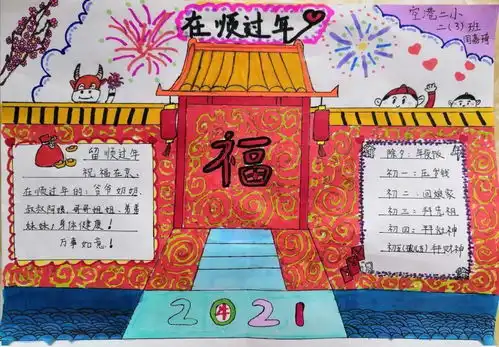 在顺过年
空港二小
二(3)班
福
留顺过年
祝福在
在顺过年的:爷爷奶奶、
叔叔阿姨、哥哥姐姐、弟弟
妹妹,身体健康!
万事如意!
除夕:年夜饭
初一:压岁钱
初二:回娘家
初三:祖
初四:神
初五拜财神
2021
牛